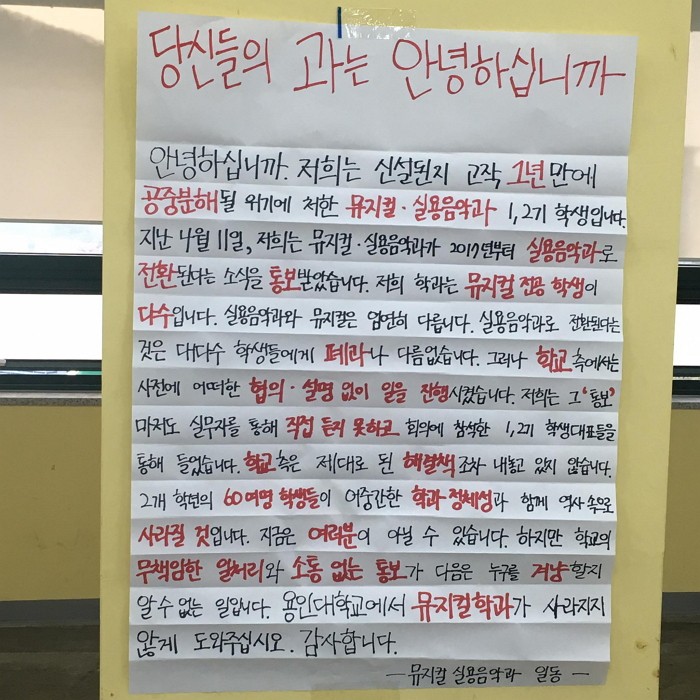 당신들의 과는 안녕하십니까
안녕하십니까. 저희는 신설된지 고작 1년 만에
공중분해될 위기에 처한 뮤지컬·실용음악과 1,2기 학생입니다.
지난 4월 11일, 저희는 뮤지컬·실용음악과가 2017년부터 실용음악과로
전환된다는 소식을 통보받았습니다. 저희 학과는 뮤지컬 전공 학생이
다수입니다. 실용음악과와 뮤지컬은 엄연히 다릅니다. 실용음악과로 전환된다는
것은 대다수 학생들에게 폐과나 다름없습니다. 그러나 학교 측에서는
사전에 어떠한 협의·설명 없이 일을 진행시켰습니다. 저희는 그 '통보'
마저도 실무자를 통해 직접 듣지 못하고 회의에 참석한 1,2기 학생대표들을
통해 들었습니다. 학교측은 제대로 된 해결책조차 내놓고 있지 않습니다.
2개 학년의 60여명 학생들이 어중간한 학과 정체성과 함께 역사 속으로
사라질 것입니다. 지금은 여러분이 아닐 수 있습니다. 하지만 학교의
무책임한 일처리와 소통 없는 통보가 다음은 누구를 겨냥할지
알 수 없는 일입니다. 용인대학교에서 뮤지컬학과가 사라지지
않게 도와주십시오. 감사합니다.
— 뮤지컬 실용음악과 일동 —